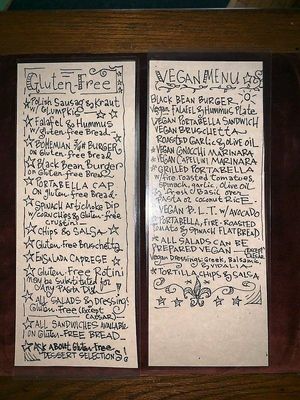 Gluten-Free
Polish Sausage & Kraut
w/ Glumpkis
Falafel & Hummus
w/ gluten-free Bread
Bohemian Burger
on Gluten-free Bread
Black Bean Burger
on Gluten-free Bread
Portabella Cap
on gluten-free Bread
Spinach Artichoke Dip
w/ corn chips & Gluten-free
crustini
Chips & Salsa
Gluten-free Bruschetta
Ensalada Caprese
Gluten-Free Rotini
may be Substituted for
any Pasta Dish
All Salads & Dressings
Gluten-free (Except
Caesar)
All Sandwiches Available
on Gluten-Free Bread
Ask About Gluten-Free
Dessert Selections!
Vegan Menu
Black Bean Burger
Vegan Falafel & Hummus Plate
Vegan Portabella Sandwich
Vegan Bruschetta
Roasted Garlic & olive oil
Vegan Gnocchi Marinara
Vegan Capellini Marinara
Grilled Portabella
w/ Fire Roasted Tomatoes
Spinach, garlic, olive oil
Fresh Basil over
Pasta or coconut Rice
Vegan B.L.T. w/ Avocado
Portabella, Fire-Roasted
Tomato & Spinach Flatbread
All Salads can be
Prepared Vegan
Vegan Dressings: Greek, Balsamic,
& Vidalia
Tortilla Chips & Salsa